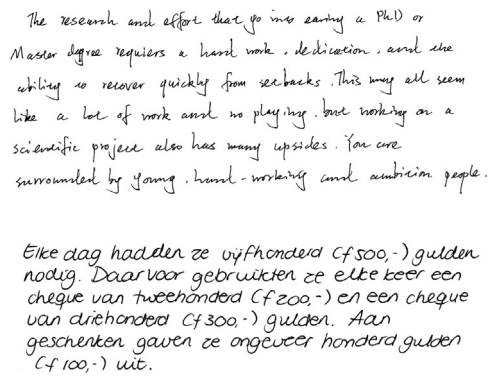 The research and effort that go into earing a PhD or
Master degree requiers a hard work, dedication, and the
ability to recover quickly from setbacks. This may all seem
like a lot of work and no playing, but working on a
scientific project also has many upsides. You are
surrounded by young, hard-working and ambition people.
Elke dag hadden ze vijfhonderd (f500,-) gulden
nodig. Daarvoor gebruikten ze elke keer een
cheque van tweehonderd (f200,-) en een cheque
van driehonderd (f300,-) gulden. Aan
geschenken gaven ze ongeveer honderd gulden
(f100,-) uit.